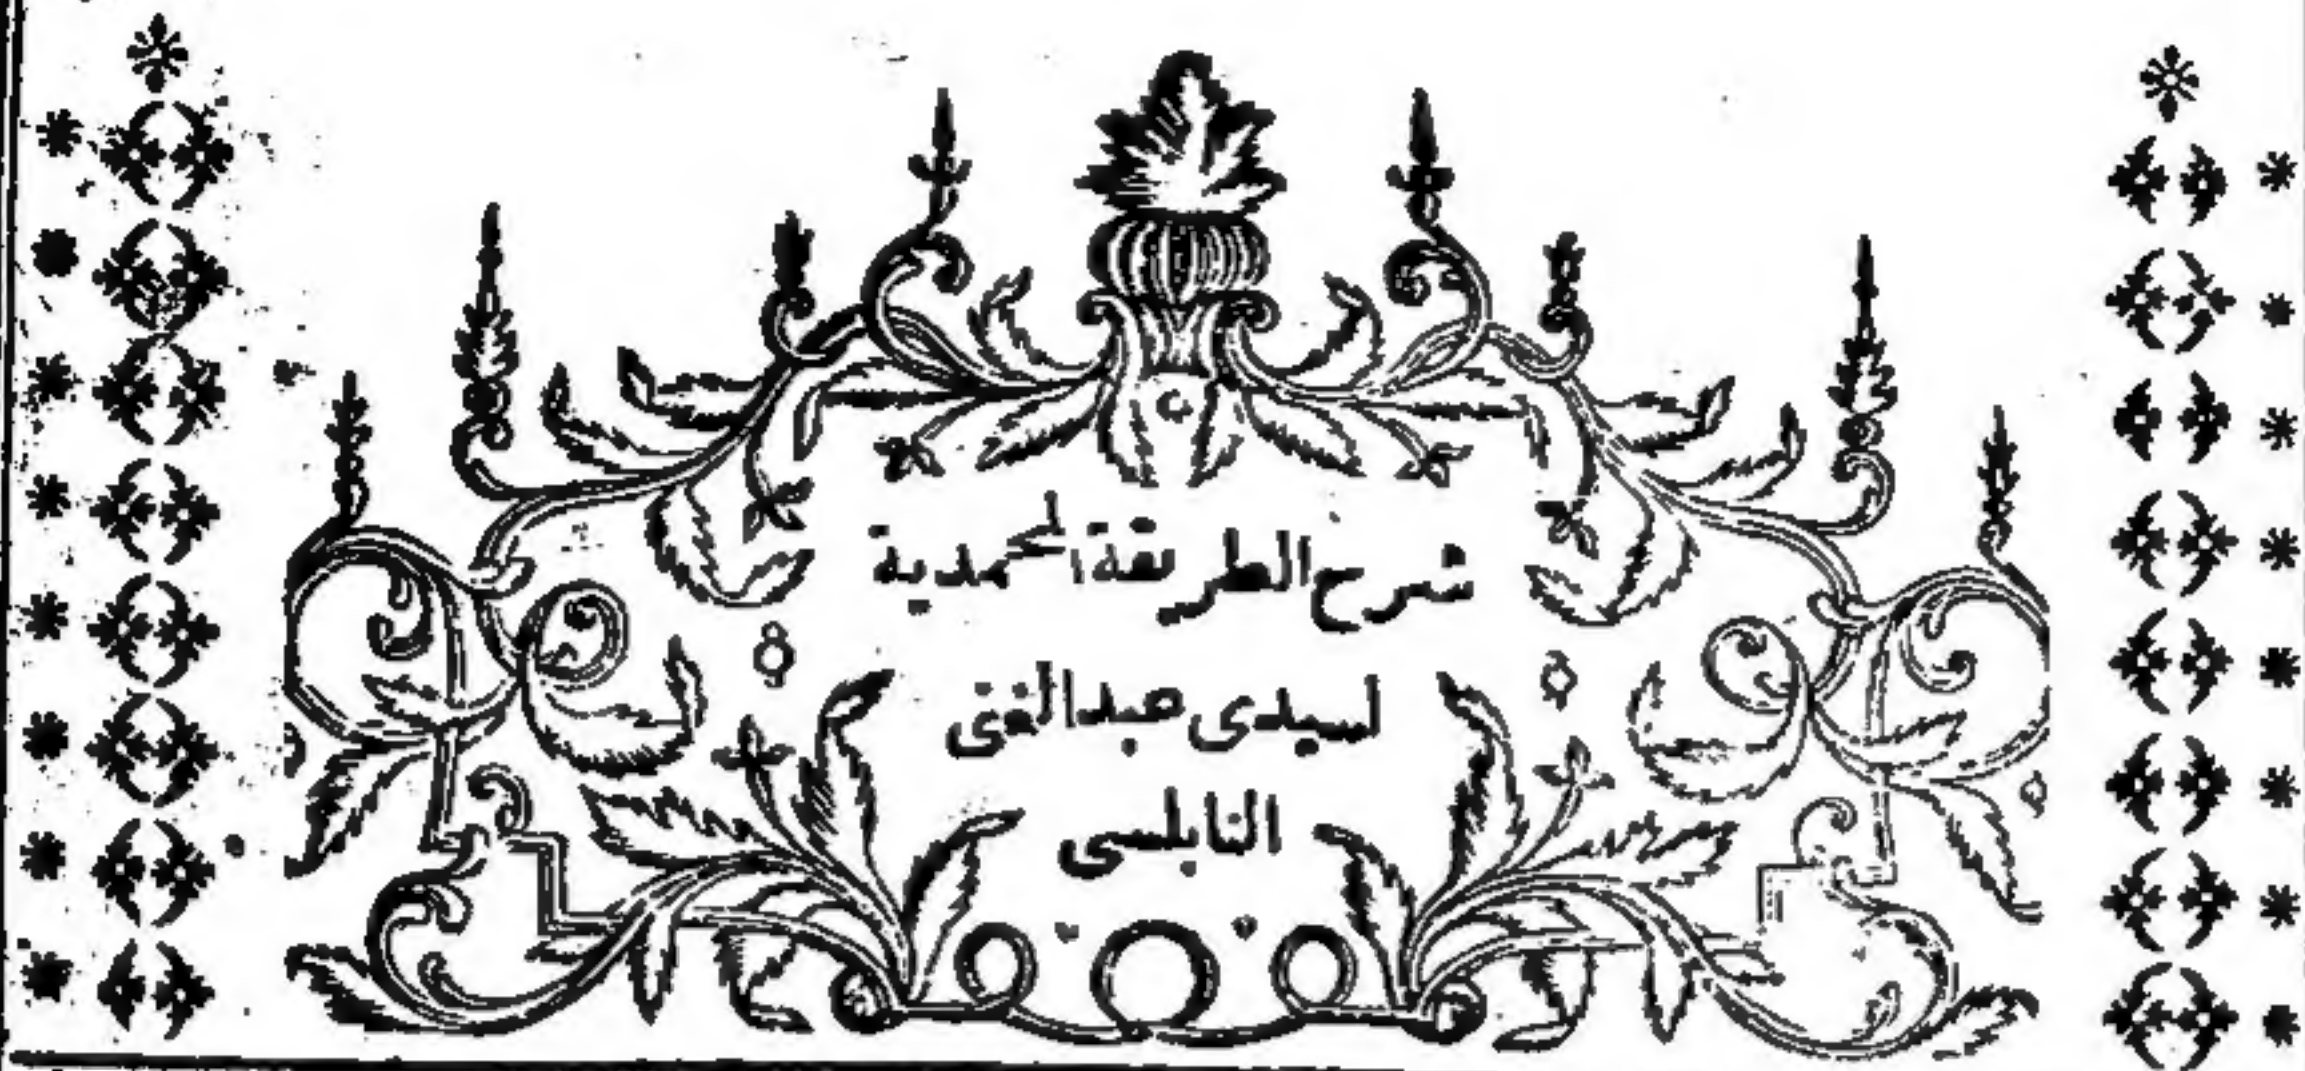 شرح الطريقة المحمدية
لسيدى عبدالغنى
النابلسى